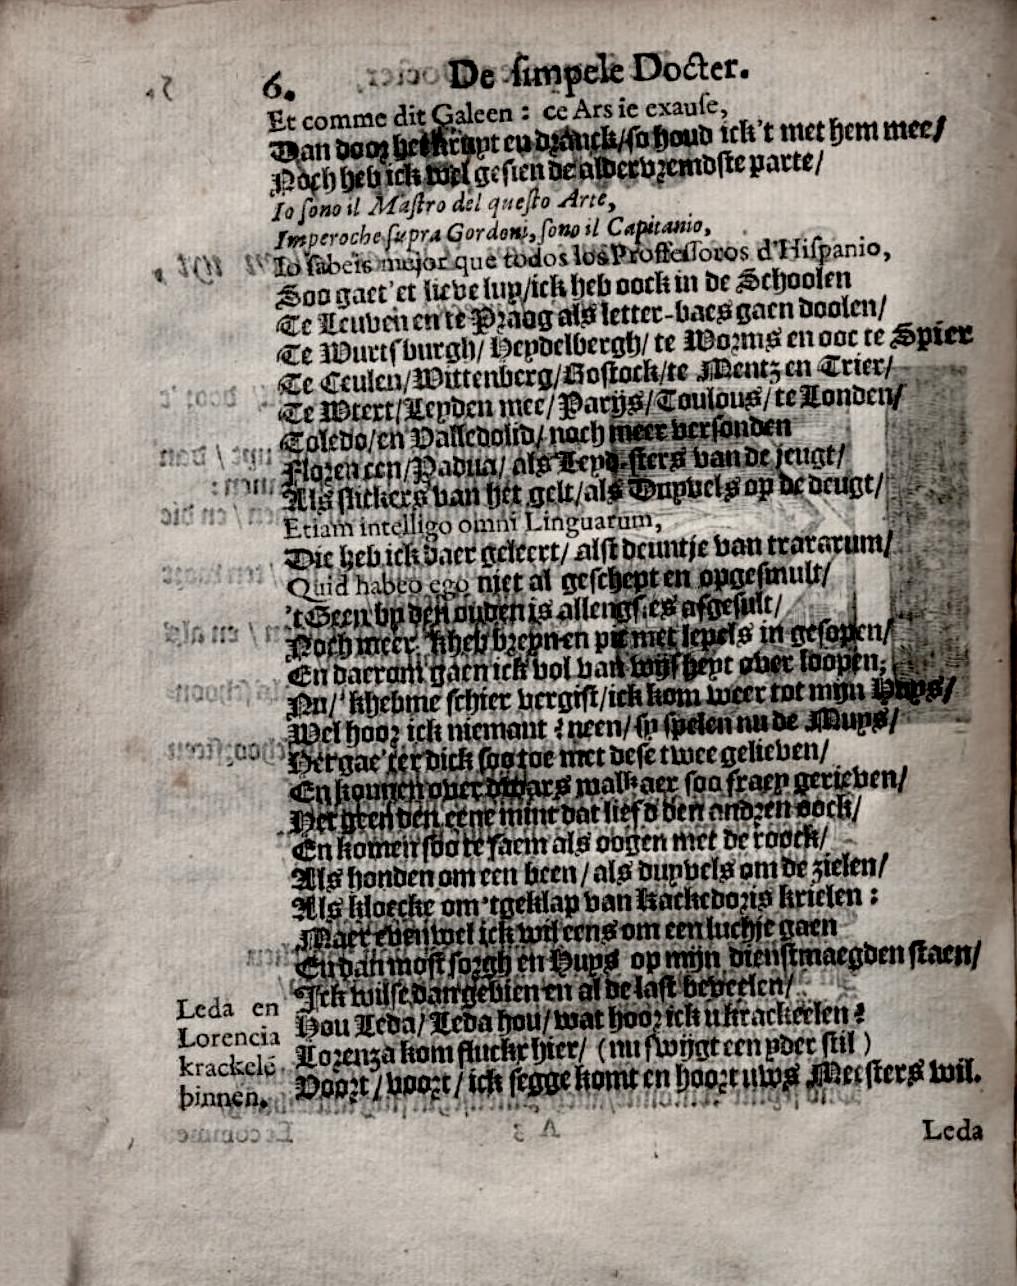 6. De simpele Docter.
Et comme dit Galeen : ce Ars ie exause,
Dan door het kruyt en dranck/so houd ick't met hem mee/
Noch heb ick wel gesien de aldervremdste parte/
Io sono il Mastro del questo Arte,
Imperoche supra Gordoni, sono il Capitanio,
Io sabeis mejor que todos los Proffessoros d'Hispanio,
Soo gaet'et lieve luy/ick heb oock in de Schoolen
Te Leuven en te Praag als letter-baes gaen doolen/
Te Wurtsburgh/Heydelbergh/te Worms en ooc te Spier
Te Ceulen/Wittenberg/Rostock/te Mentz en Trier/
Te Wtert/Leyden mee/Parijs/Toulous/te Londen/
Toledo/en Valledolid/noch meer versonden
Florencen/Padua/als Leyd-sters van de jeugt/
Als slickers van het gelt/als Duyvels op de deugt/
Etiam intelligo omni Linguarum,
Die heb ick daer geleert/alst deuntje van trararum/
Quid habeo ego niet al geschept en opgesmult/
't Geen by den ouden is allengskes afgesult/
Noch meer. 'k heb breyn en pit met lepels in gesopen/
En daerom gaen ick vol van wijsheyt over loopen;
Nu/'k hebme schier vergist/ick kom weer tot mijn Huys/
Wel hoor ick niemant ? neen/sy spelen nu de Muys/
Het gae'ter dick soo toe met dese twee gelieven/
En konnen over dwars malkaer soo fraey gerieven/
Het geen den eene mint dat liefd den andren oock/
En komen soo te saem als oogen met de roock/
Als honden om een been/als duyvels om de zielen/
Als kloecke om 'tgeklap van Kackedoris krielen :
Maer evenwel ick wil eens om een luchje gaen
En dan most sorgh en Huys op mijn dienstmaegden staen/
Ick wilse dan gebien en al de last beveelen/
Hou Leda/Leda hou/wat hoor ick u krackeelen ?
Lorenza kom fluckx hier/(nu swijgt een yder stil)
Voort/voort/ick segge komt en hoort uws Meesters wil.
Leda en
Lorencia
krackelē
binnen.
Leda